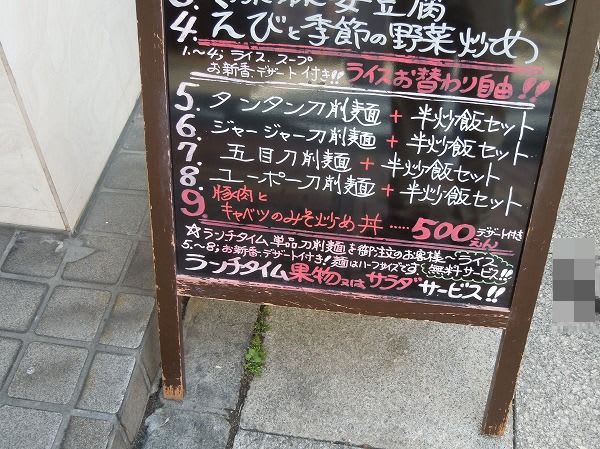 3.
4. えびと季節の野菜炒め
1.〜4.ライス、スープ
お新香・デザート付き!!
ライスお替わり自由!!
5. タンタン刀削麺 + 半炒飯セット
6. ジャージャー刀削麺 + 半炒飯セット
7. 五目刀削麺 + 半炒飯セット
8. ユーポー刀削麺 + 半炒飯セット
9 豚肉と
キャベツのみそ炒め丼 ……500えん
デザート付き
☆ランチタイム単品刀削麺を御注のお客様へライス
5.〜8;お新香・デザート付き!麺はハーフサイズです 無料サービス!!
ランチタイム果物又はサラダサービス!!